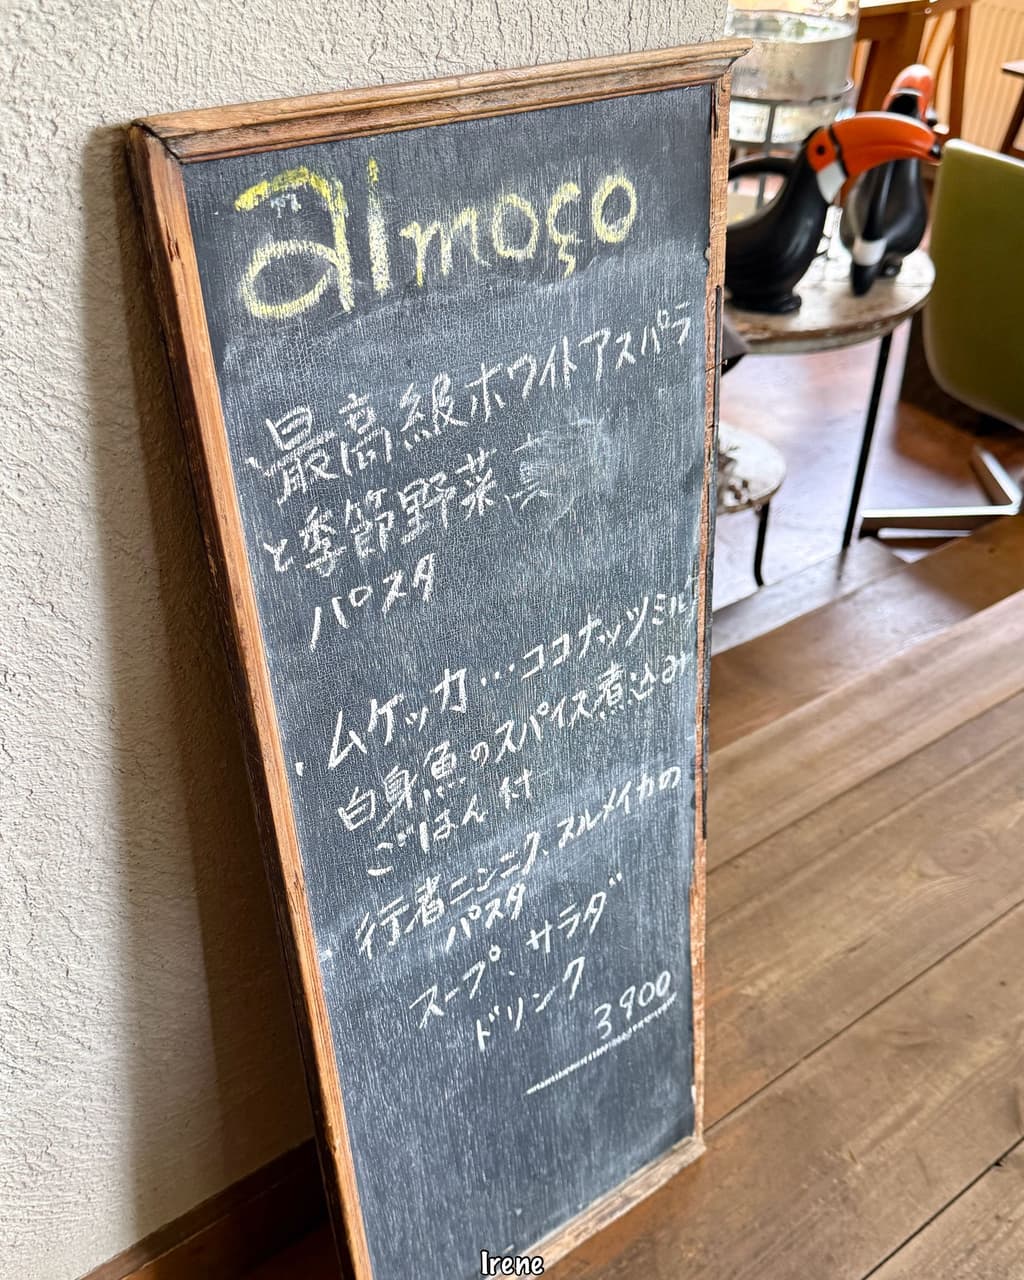 almoço
最高級ホワイトアスパラ
と季節野菜
パスタ
・ムケッカ…ココナッツミルク
白身魚のスパイス煮込み
ごはん付
行者ニンニク、スルメイカの
パスタ
スープ、サラダ
ドリンク
3900
Irene